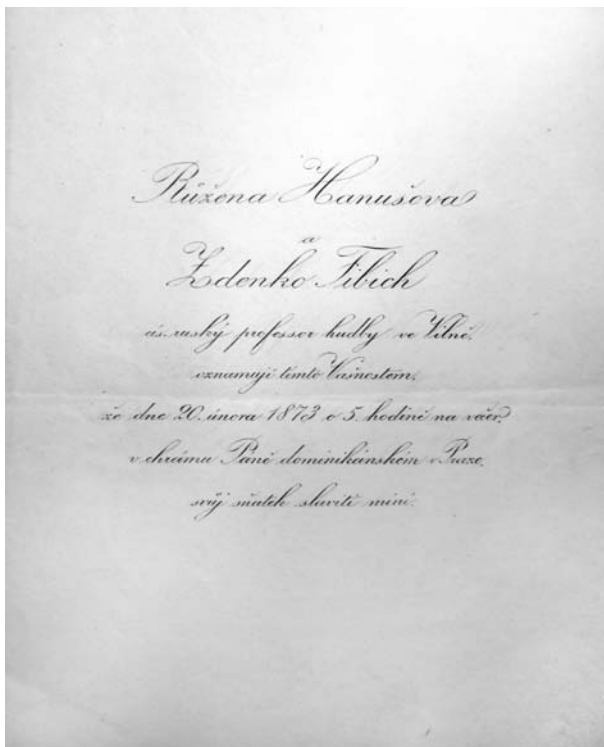 Růžena Hanušova
a
Zdenko Fibich
cís. ruský professor hudby ve Vilně,
oznamují tímto Vašnostem,
že dne 20. února 1873 o 5. hodině na večer,
v chrámu Páně dominikánském v Praze,
svůj sňatek slaviti míní.